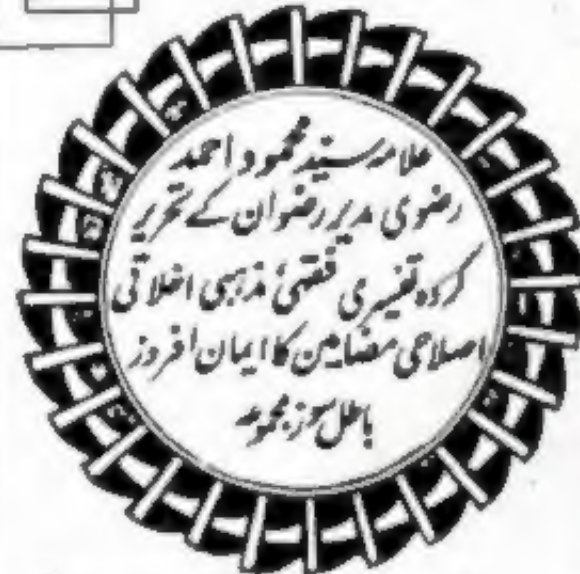 علامہ سید محمود احمد
رضوی مدیر رضوان کے تحریر
کردہ تفسیری فقہی مذہبی اخلاقی
اصلاحی مضامین کا ایمان افروز
باطل سوز مجموعہ